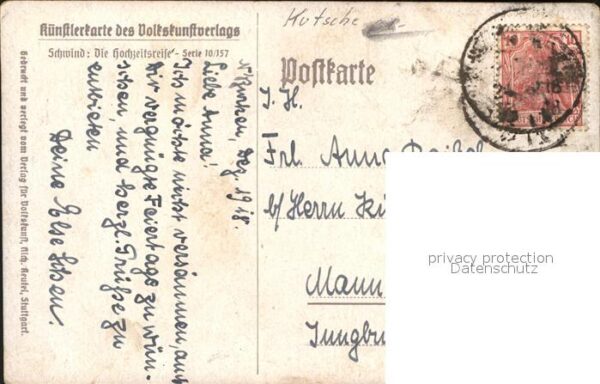 Künstlerkarte des Volkskunstverlags
Schwind: Die Hochzeitsreise - Serie 10/157
Kutsche
Postkarte
Dez. 1918.
Liebe Anna!
Ich möchte nicht versäumen, auch
Dir vergnügte Feiertage zu wün-
schen, und herzl. Grüße zu
entbieten
Deine Else
I. H.
Frl. Anna
b/ Herrn
Mann
Jungbu
Gedruckt und verlegt vom Verlag für Volkskunst, Rich. Keutel, Stuttgart.
privacy protection
Datenschutz